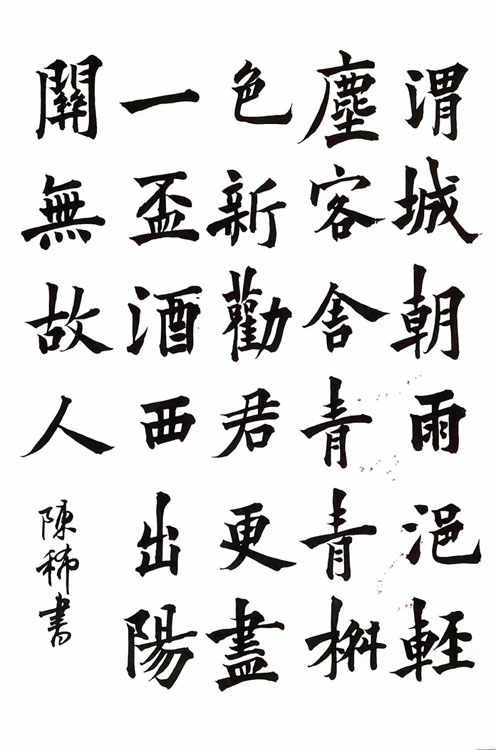 渭城朝雨浥輕
塵客舍青青桺
色新勸君更盡
一盃酒西出陽
關無故人
陳稀書